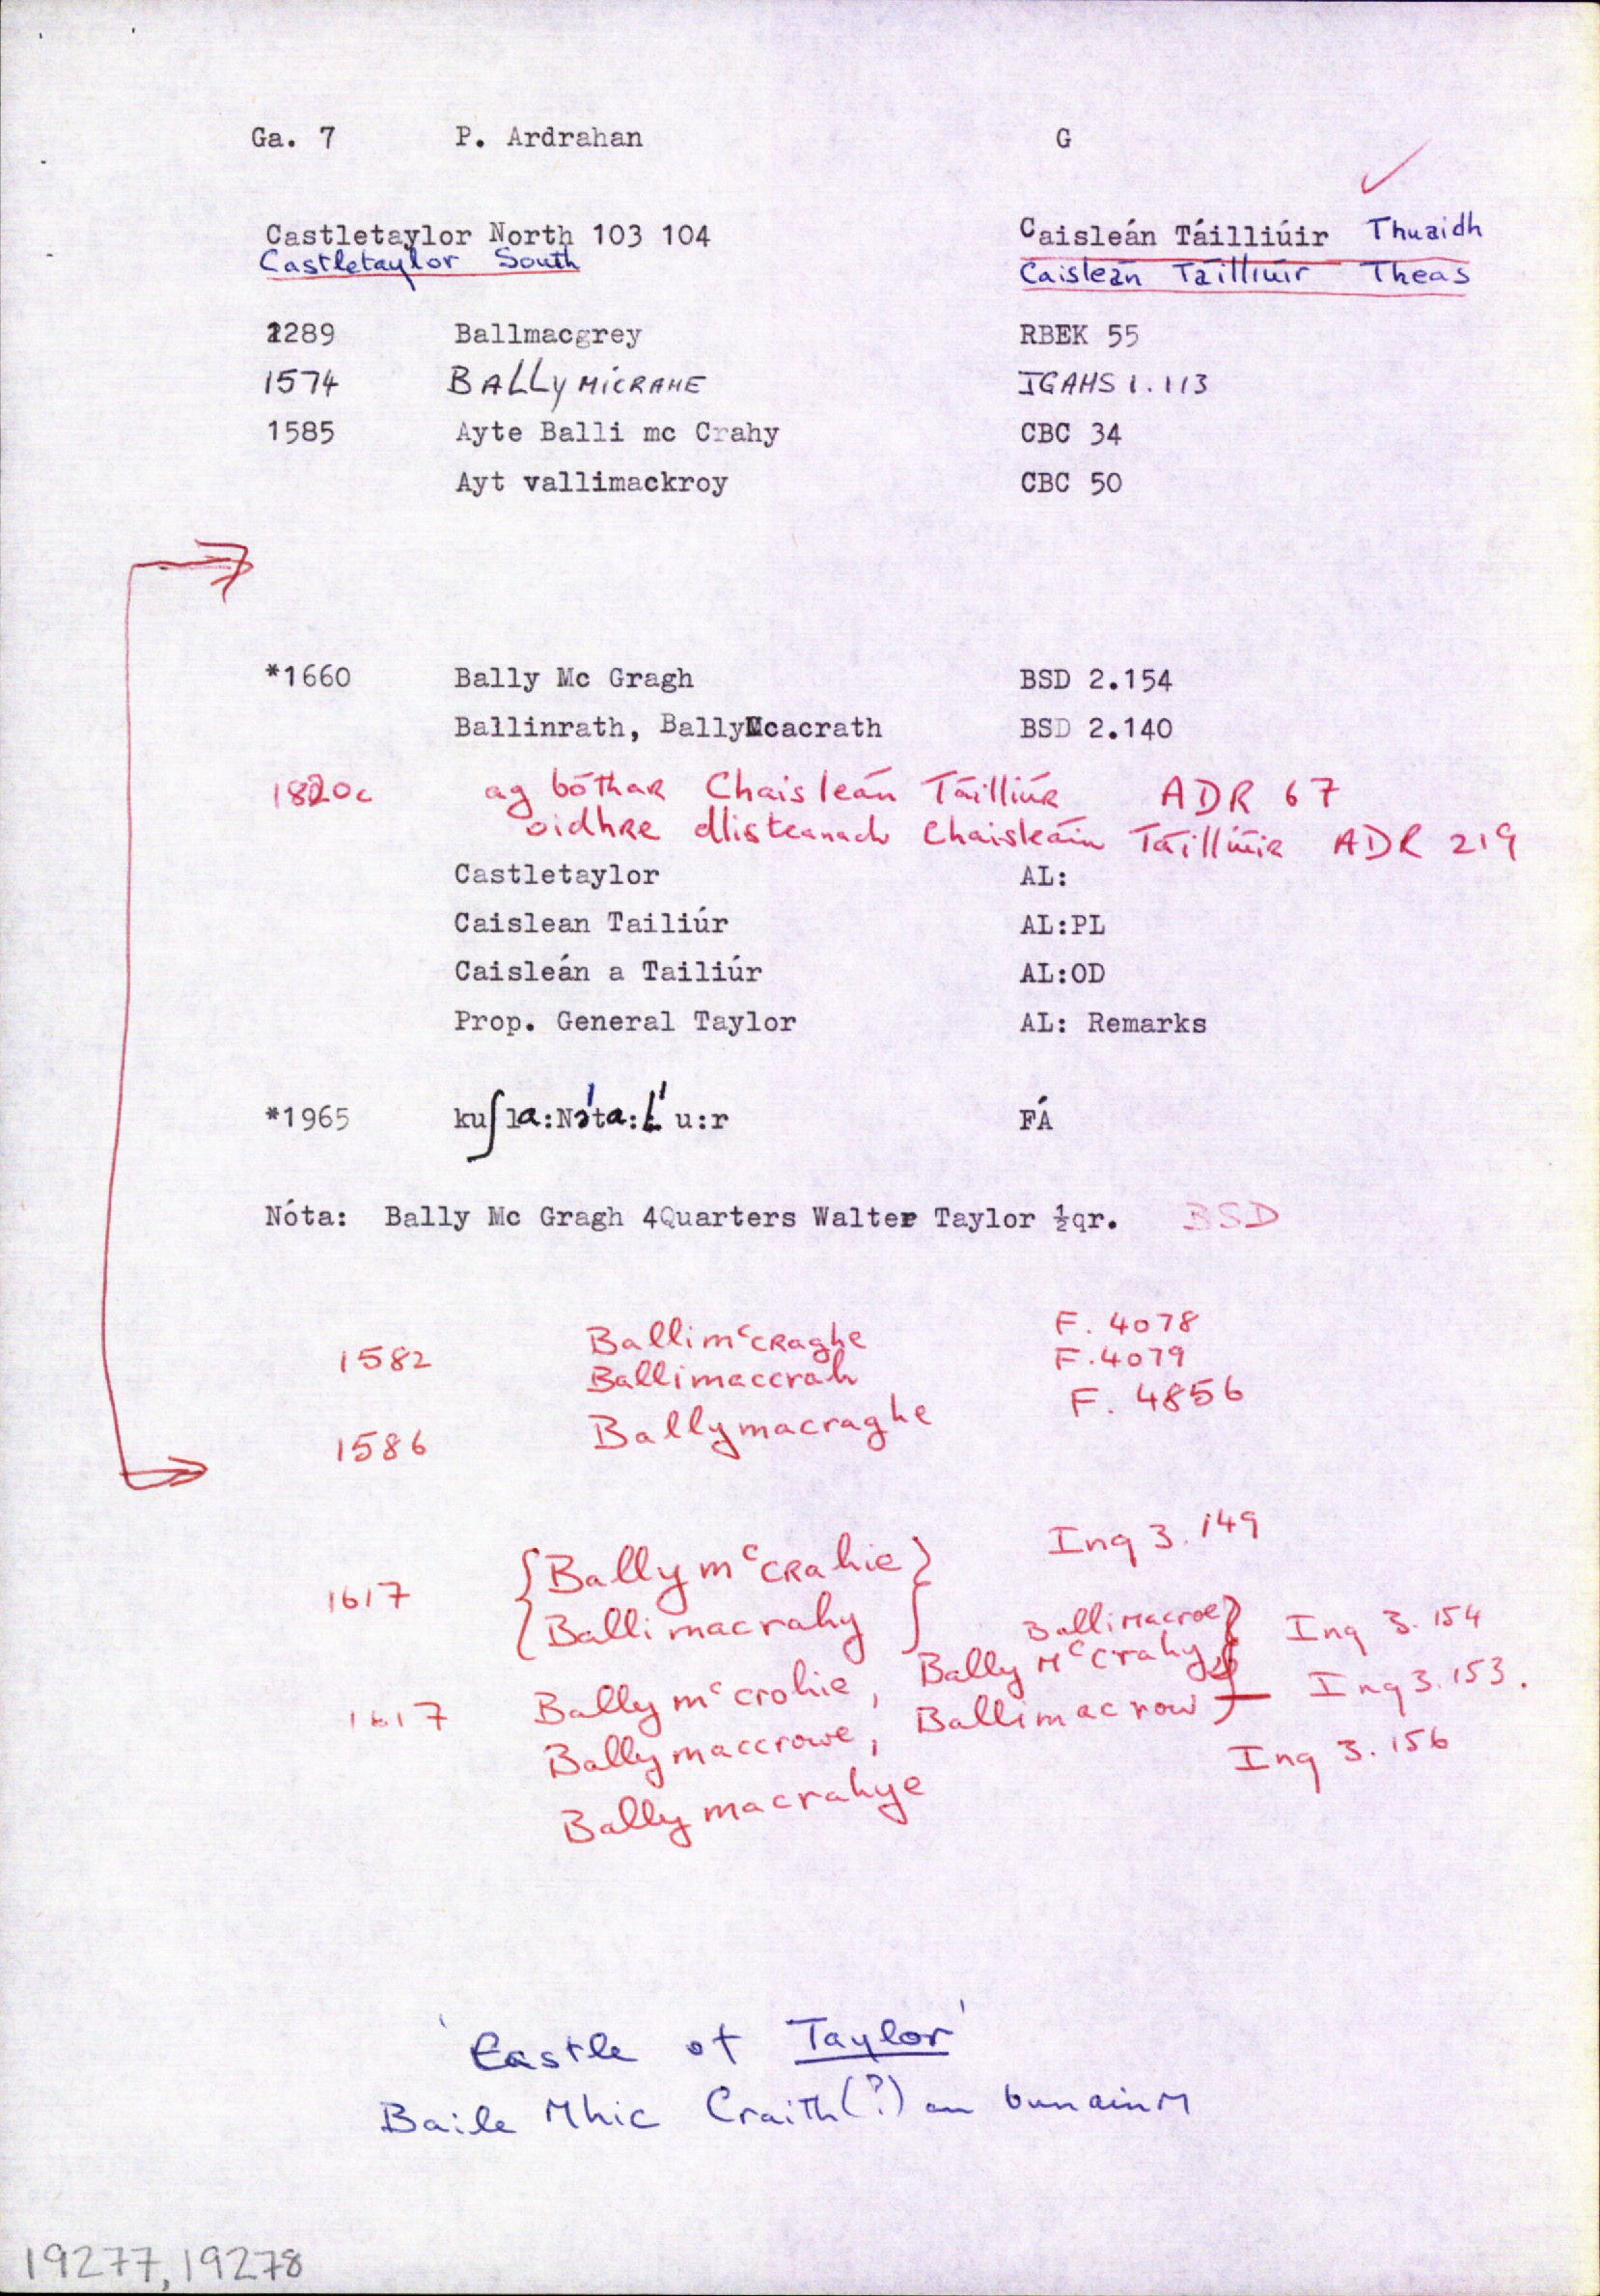 Ga. 7 P. Ardrahan G
Castletaylor North 103 104 Caisleán Táilliúir Thuaidh
Castletaylor South Caisleán Táilliúir Theas
1289 Ballmacgrey RBEK 55
1574 BALLYMICRAHE JGAHS 1.113
1585 Ayte Balli mc Crahy CBC 34
Ayt vallimackroy CBC 50
*1660 Bally Mc Gragh BSD 2.154
Ballinrath, BallyMcacrath BSD 2.140
1820c ag bóthar Chaisleán Táilliúr ADR 67
oidhre dlisteanach Chaisleáin Táilliúir ADR 219
Castletaylor AL:
Caislean Tailiúr AL:PL
Caisleán a Tailiúr AL:OD
Prop. General Taylor AL: Remarks
*1965 kuʃla:Nə'ta:L'u:r FÁ
Nóta: Bally Mc Gragh 4Quarters Walter Taylor ½qr. BSD
1582 Ballimᶜcraghe F. 4078
Ballimaccrah F.4079
1586 Ballymacraghe F. 4856
1617 {Bally mᶜcrahie} Inq 3.149
{Ballimacrahy}
Ballimacroe} Inq 3.154
1617 Bally mᶜcrohie, Bally Mᶜcrahy} Inq 3.153.
Ballymaccrowe, Ballimacrow}
Ballymacrahye Inq 3.156
'Castle of Taylor'
Baile Mhic Craith(?) an bunainm
19277, 19278